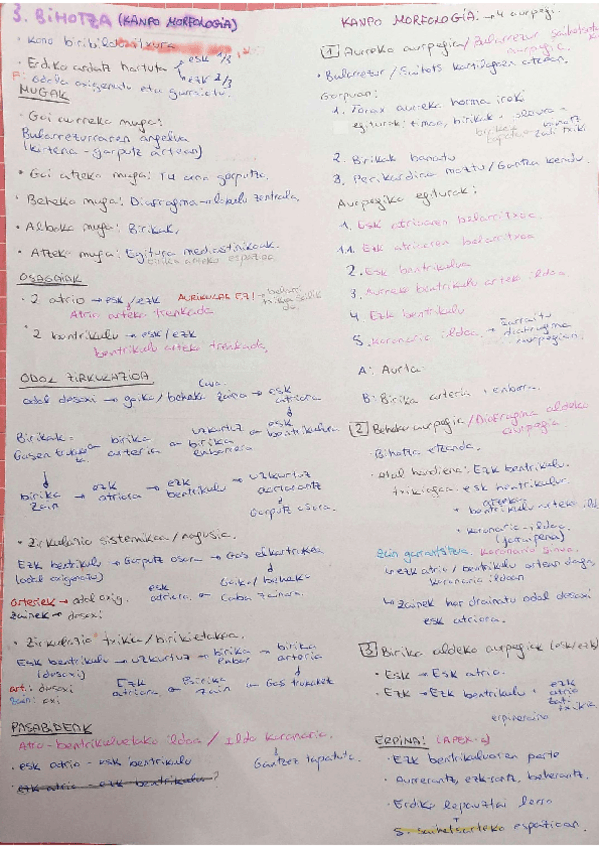 3. BIHOTZA (KANPO MORFOLOGIA)
• Kono biribildu itxura
• Erdiko ardatz hartuta → esk 1/3
→ ezk 2/3
F: odola oxigenatu eta gurutzatu.
MUGAK
• Goi aurreko muga:
Bularrezurraren angelua
(kirtena - gorputz artean)
• Goi atzeko muga: T4 aren gorputza.
• Beheko muga: Diafragma → lobulu zentrala.
• Alboko muga: Birikak.
• Atzeko muga: Egitura mediastinikoak.
birika arteko espazioa
OSAGAIAK
• 2 atrio → esk/ezk AURIKULAK EZ! → belarri
txikia
Atrio arteko trenkada
• 2 bentrikulu → esk/ezk
bentrikulu arteko trenkada.
ODOL ZIRKULAZIOA
odol desoxi → goiko/beheko Cava zaina → esk
atriora
Birikak: Gasen trukea ← birika arteria ← uzkurtuz birika enborrera ← esk bentrikulura
birika zain → ezk atriora → ezk bentrikulu → uzkurtuz aortarantz
Gorputz osora.
• Zirkulazio sistemikoa/nagusia.
Ezk bentrikulu → Gorputz osora → Gas elkartrukea
(odol oxigenatu)
Arteriek → odol oxig. esk atriora ← Goiko/beheko Caba zainara.
zainek → desoxi
• Zirkulazio txikia/biriketakoa.
Esk bentrikulu → uzkurtuz → birika enbor → birika arteria
(desoxi)
art: desoxi Ezk atriora ← Birika zain ← Gas trukaket
zain: oxi
PASABIDEAK
Atrio-bentrikuluetako ildoa / Ildo koronario.
• esk atrio - esk bentrikulu Gantzez tapatuta.
• ezk atrio - ezk bentrikulu?
KANPO MORFOLOGIA: → 4 aurpegi.
1 Aurreko aurpegia/Bularrezur saihetsetako
aurpegia.
• Bularrezur/Saihets kartilagoen atzean.
Gorpuan:
1. Torax aurreko horma ireki
egiturak: timoa, birikak
2. Birikak banatu
3. Perikardioa moztu/Gantza kendu.
Aurpegiko egiturak:
1. Esk atrioaren belarritxoa.
1.1. Ezk atrioaren belarritxoa
2. Esk bentrikulua
3. Aurreko bentrikulu arteko ildoa.
4 Ezk bentrikulu
5. Koronario ildoa. → Jarraitu
diafragma
aurpegian.
A: Aorta.
B: Birika arteria enbora.
2 Beheko aurpegia/Diafragma aldeko
aurpegia
• Bihotza etzanda.
• Atal handiena: Ezk bentrikulu.
txikiagoa: esk bentrikulu.
• atzeko
bentrikulu arteko ildo
• koronario-ildoa.
(jarraipena)
Zain garrantzitsua: Koronario Sinua.
↳ ezk atrio/bentrikulu artean dago,
koronario ildoan
↳ Zainek har drainatu odol desoxi
esk atriora.
3 Birika aldeko aurpegiak (esk/ezk)
• Esk → Esk atrio.
• Ezk → Ezk bentrikulu • ezk
atrio
zati
txikik
erpineraino
ERPINA: (APEX-a)
• Ezk bentrikuluaren parte
• Aurrerantz, ezkerrantz, beherantz.
• Erdiko lepauztai lerro
5. saihetsarteko espazioan.